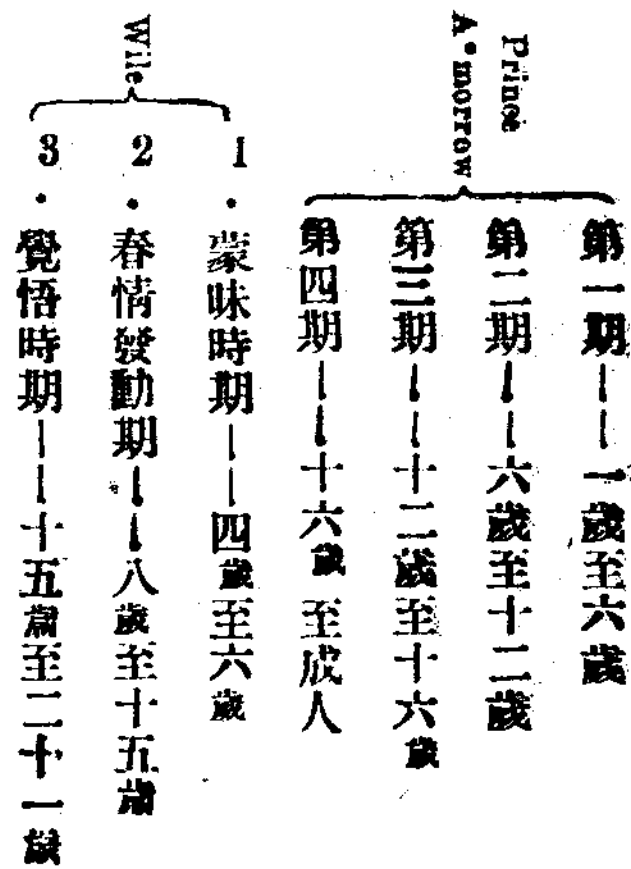 Prince
A·morrow
第一期——一歲至六歲
第二期——六歲至十二歲
第三期——十二歲至十六歲
第四期——十六歲至成人
Wile
1·蒙昧時期——四歲至六歲
2·春情發動期——八歲至十五歲
3·覺悟時期——十五歲至二十一歲